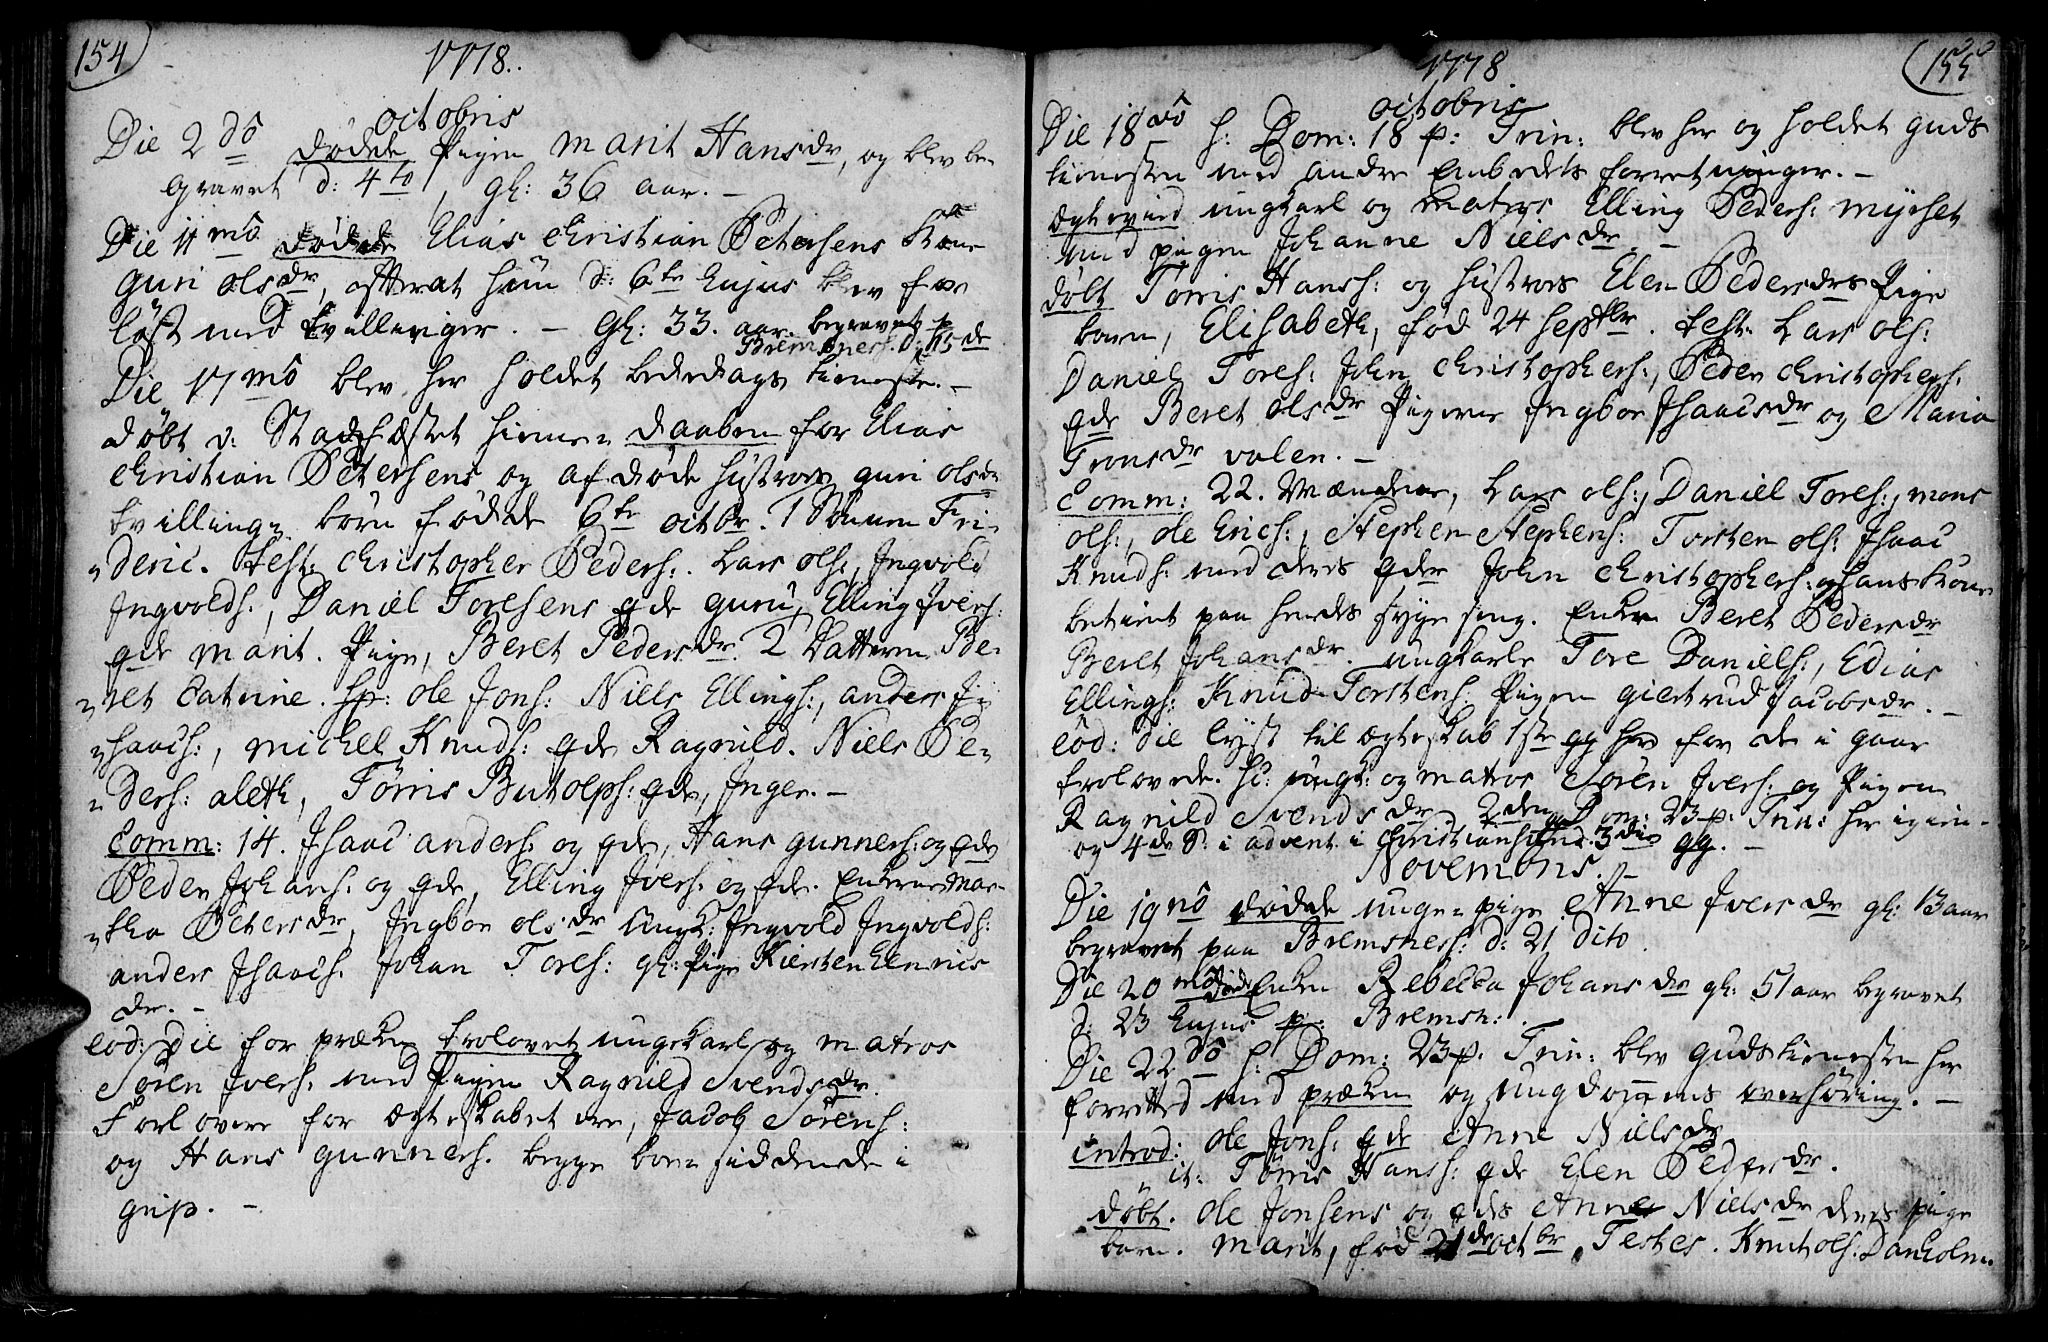 154
1778.
octobris
Die 2do døde Pigen Marit Hansdr, og blev be-
gravet d: 4to, gl: 36 aar. -
Die 11mo døde Elias Christian Petersens Kone
Guri olsdr, efterat hun d: 6te hujus blev for
løst med tvillinger. - gl: 33. aar. begravet p
Bremsnes. d: 15de
Die 17mo blev her holdet bededags tieneste. -
døbt d: Stadfæstet hieme- daaben for Elias
Christian Petersens og afdøde hustroes guri olsdr
tvilling- børn fødde 6te octbr. 1 Sønnen Fri-
-deric. test: Christopher Peders:. Lars ols:, Ingvold
Ingvolds:, Daniel Toresens qde guru, Elling Ivers:
qde marit. Pige, Beret Pedersdr. 2 Datteren Be-
-ret Catrine. sp: ole Jons: Niels Ellings:, anders I-
-saachs:, michel Knuds: qde Ragnild. Niels Pe-
-ders: aleth, Tørris Butolphs: qde, Inger. -
Comm: 14. Isaac anders: og qde, Hans gunners: og qde
Peder Johans: og qde, Elling Ivers: og qde. Enkerne Mar-
-tha Petersdr, Ingbor olsdr Ungk: Ingvold Ingvolds:
anders Isaachs. Johan Tores: gl: Pige Kiersten Henrics
dr. -
eod: die for præken trolovet ungekarl og matros
Søren Ivers: med Pigen Ragnild Svendsdr.
Forlovere for ægteskabet ere, Jacob Sørens:
og Hans gunners. begge boesiddende i
grip. -
155
1778
octobris
Die 18vo h: Dom: 18 p: Trin: blev her og holdet guds
tienesten med andre Embedets forretninger. -
ægteviid ungkarl og matros Elling Peders: myrset
med pigen Johanne Nielsdr. -
døbt Tørris Hans: og hustroes Elen Pedersdrs Pige
barn, Elisabeth, fød 24 septbr. test: Lars ols:
Daniel Tores: John Christophers:, Peder Christophers:
qde Beret olsdr Pigerne Ingbor Isaacsdr og Maria
Tronsdr valen. -
Comm: 22. Mændene, Lars ols:, Daniel Tores:, mons
ols:, ole Erics:, Stephen Stephens: Torsten ols: Isaac
Knuds: med deres qder John Christophers: og hans Kone
betient paa hendes syge seng. Enken Beret Pedersdr
Beret Johansdr. ungkarle Tore Daniels:, Elias
Ellings: Knud Torstens. Pigen giertrud Jacobsdr. -
eod: die lyst til ægteskab 1ste gg her for de i gaar
trolovede. sc: ungk: og matros Søren Ivers: og Pigen
Ragnild Svendsdr 2den Dom: 23 p: Trin: her igien-
og 4de S: i advent i Christiansund. 3die gg. -
Novembris. -
Die 19no døde unge- pige Anne Iversdr gl: 13 aar
begravet paa Bremsnes: d: 21 dito.
Die 20mo døde Enken Rebecca Johansdr gl: 51 aar begravet
d: 23 hujus p: Bremsn: .
Die 22do h: Dom: 23 p. Trin: blev gudstienesten her
forretted med præken og ungdommens overhøring. -
introd: ole Jons: qde Anne Nielsdr
" it: Tørris Hans: qde Elen Pedersdr.
døbt. ole Jonsens og qdes Anne Nielsdr deres pige
barn. Marit, fød 21de octbr. Testes. Knut ols: Dan